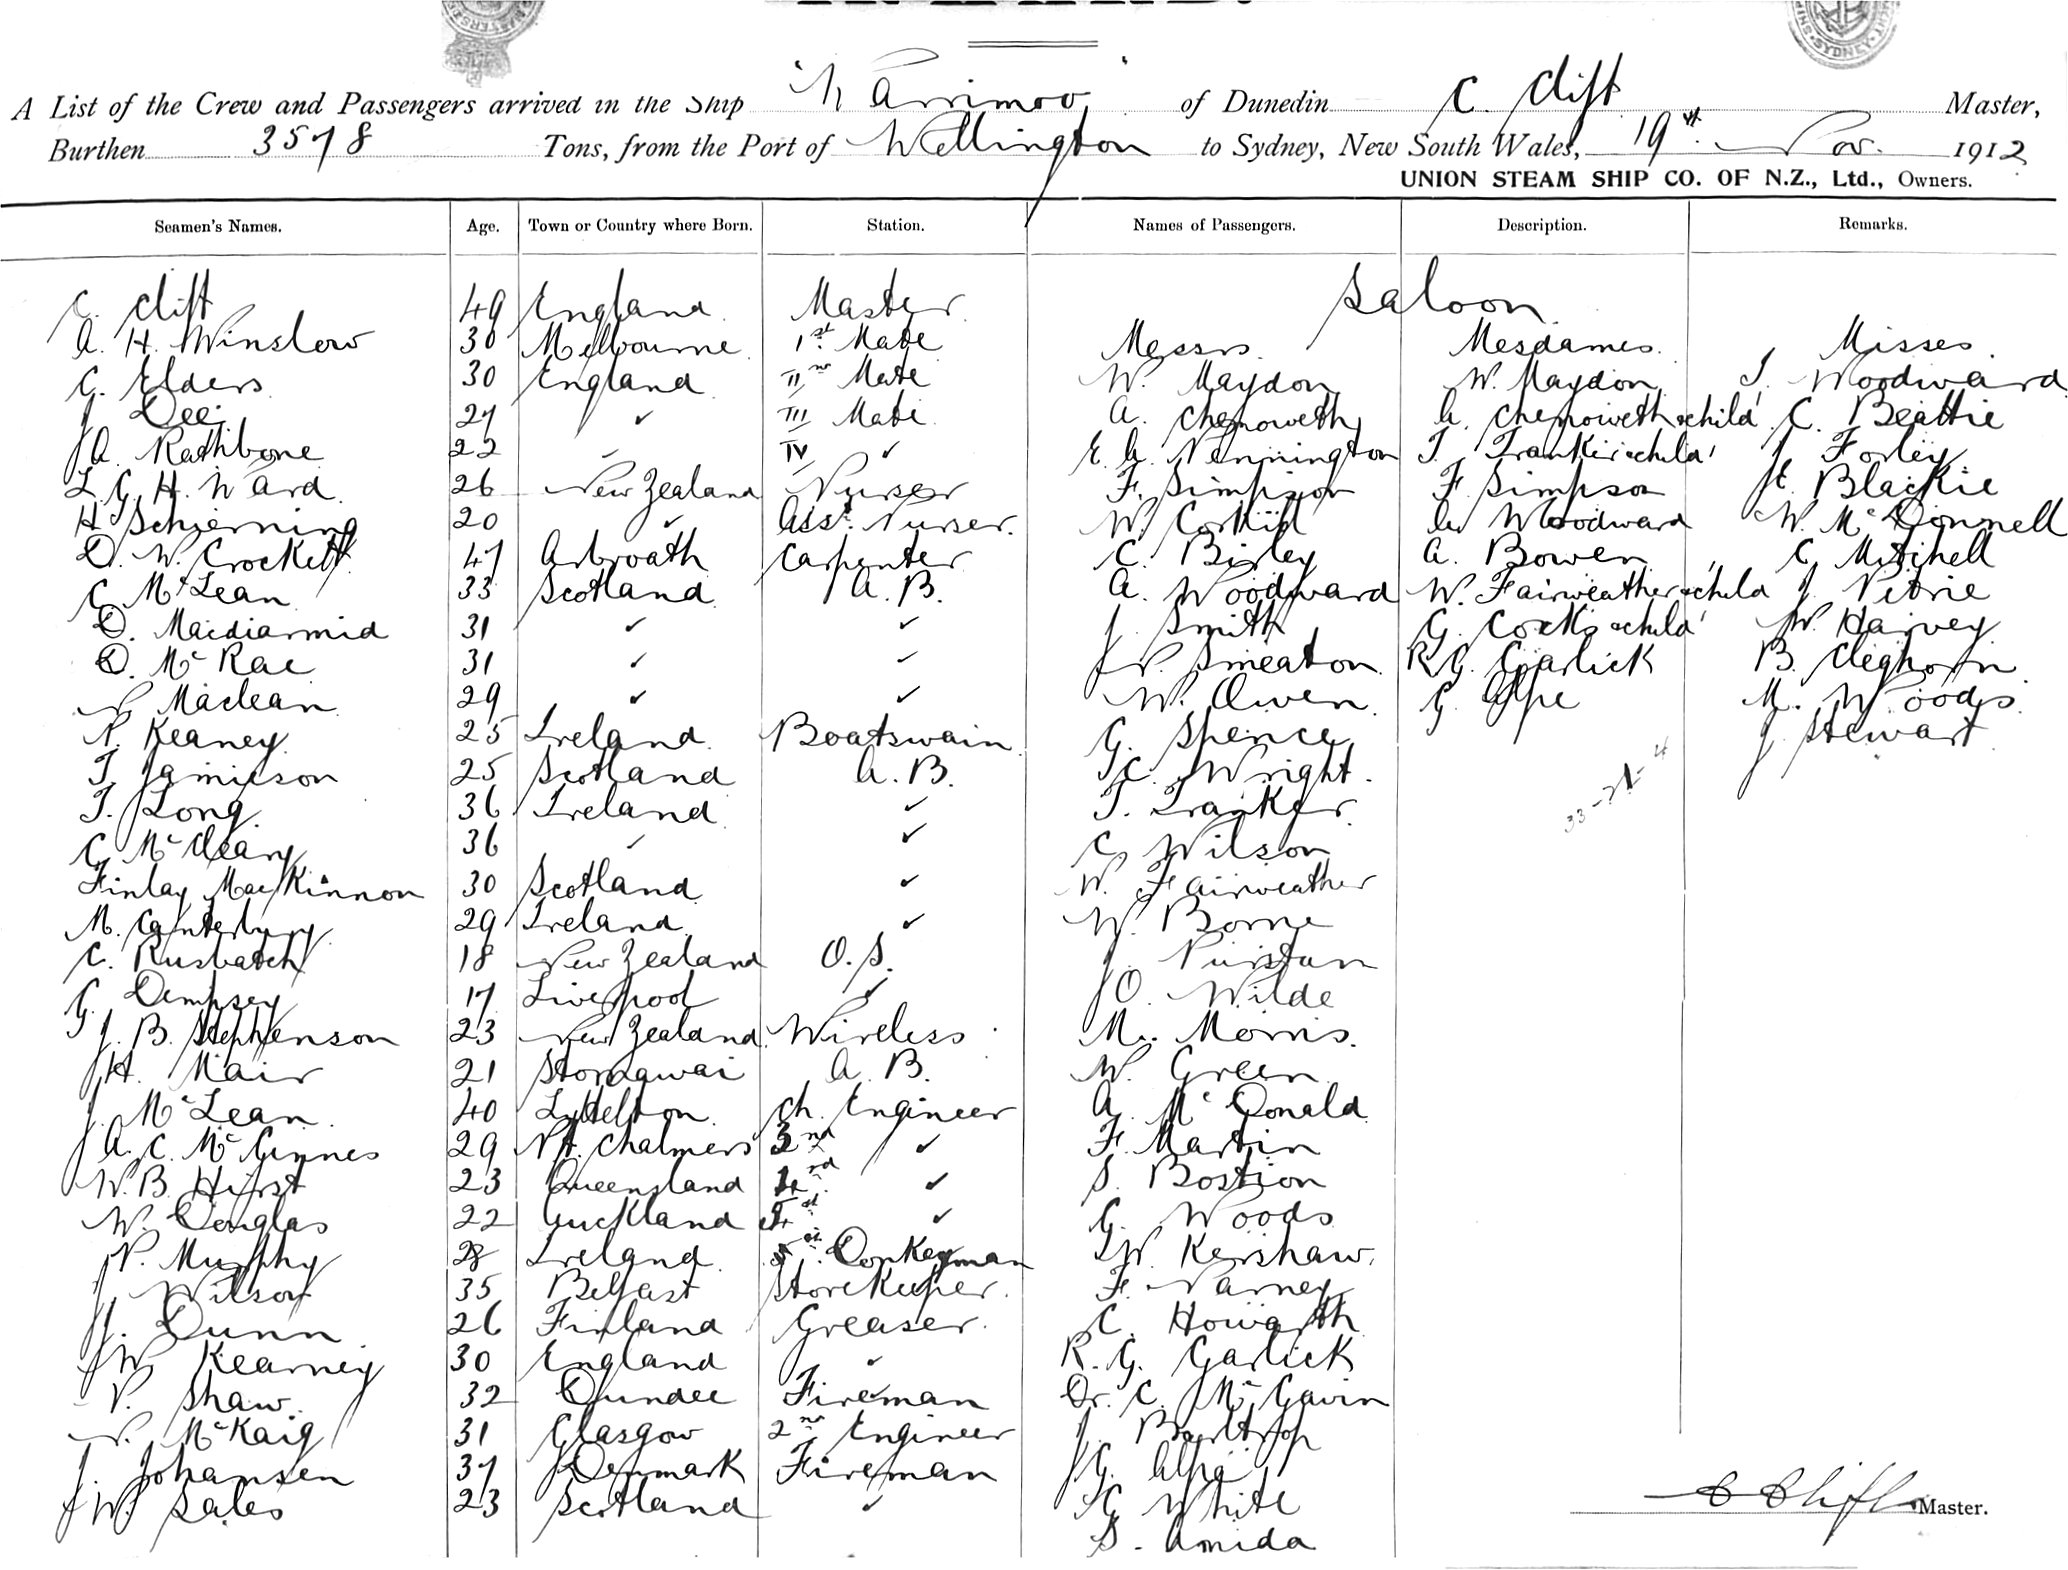 A List of the Crew and Passengers arrived in the Ship "Warrimoo" of Dunedin C. Clift Master,
Burthen 3578 Tons, from the Port of Wellington to Sydney, New South Wales, 19th Nov. 1912
UNION STEAM SHIP CO. OF N.Z., Ltd., Owners.
Seamen's Names. Age. Town or Country where Born. Station. Names of Passengers. Description. Remarks.
C. Clift 49 England Master Saloon
A. H. Winslow 30 Melbourne 1st Mate Messrs. Mesdames. Misses.
C. Elders 30 England II Mate W. Maydon W. Maydon J. Woodward
J. Dee 27 ✓ III Mate A. Chenoweth A. Chenoweth & child C. Beattie
A. Rathbone 22 ✓ IV ✓ E. A. Pennington T. Tranker & child J. Forley
L. G. H. Ward 26 New Zealand Purser F. Simpson F. Simpson E. Blackie
H. Schierning 20 ✓ Asst. Purser. W. Corkid A. Woodward W. McDonnell
D. W. Crockett 47 Arbroath Carpenter C. Birley A. Bowen C. Mitchell
C. McLean 33 Scotland A. B. A. Woodward W. Fairweather & child J. Petrie
D. Macdiarmid 31 ✓ ✓ J. Smith G. Cocks & child W. Harvey
D. McRae 31 ✓ ✓ J. P. Smeaton R. G. Garlick B. Cleghorn
N. Maclean 29 ✓ ✓ W. Owen G. Alpe M. Woods
P. Keaney 25 Ireland Boatswain G. Spence J. Stewart
T. Jamieson 25 Scotland A. B. C. Wright
T. Long 36 Ireland ✓ T. Tranker
C. McCleary 36 ✓ ✓ C. Wilson
Finlay MacKinnon 30 Scotland ✓ W. Fairweather
M. Canterbury 29 Ireland ✓ W. Borne
C. Rusbatch 18 New Zealand O. S. J. Purstan
G. Dempsey 17 Liverpool ✓ O. Wilde
J. B. Stephenson 23 New Zealand Wireless M. Morris
H. Mair 21 A. B. W. Green
J. McLean 40 Lyttelton Ch. Engineer A. McDonald
A. C. McGinnes 29 Pt. Chalmers 3rd ✓ F. Martin
W. B. Hirst 23 Queensland ✓ S. Bostion
W. Douglas 22 Auckland ✓ G. Woods
P. Murphy 28 Ireland Donkeyman W. Kershaw
J. Wilson 35 Belfast Storekeeper F. Varney
J. Dunn 26 Finland Greaser C. Howarth
W. Kearney 30 England ✓ R. G. Garlick
P. Shaw 32 Dundee Fireman Dr. C. McGavin
N. McKaig 31 Glasgow 2nd Engineer J. Barltrop
J. Johansen 37 Denmark Fireman G. Alpe
W. Sales 23 Scotland ✓ C. White
S. Amida
C Clift Master.